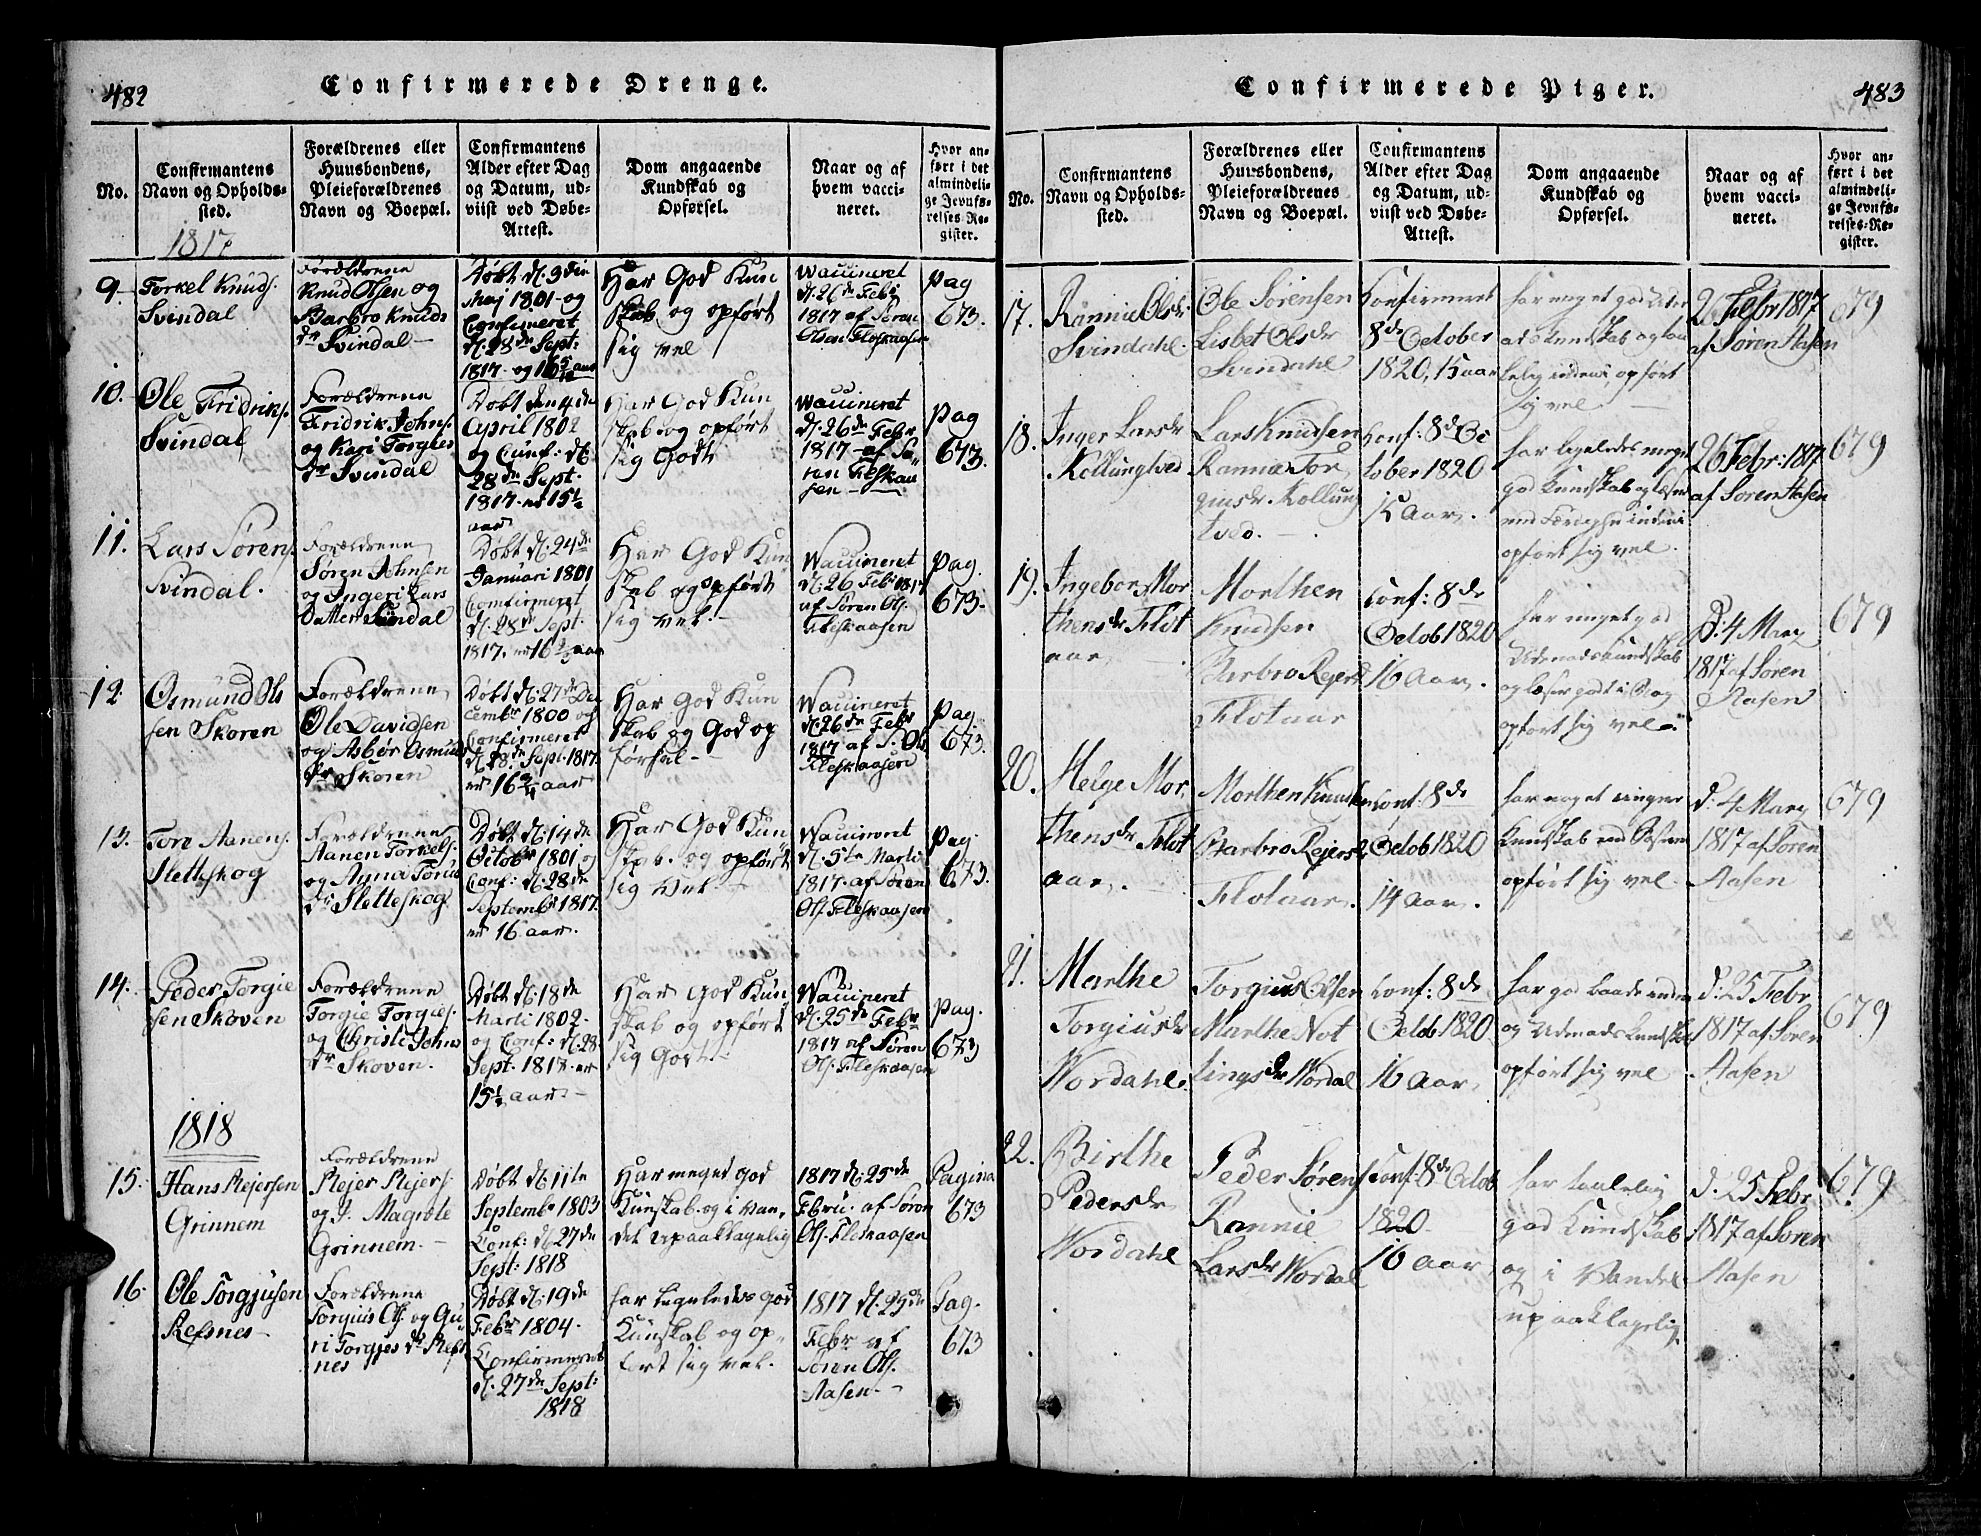 482
Confirmerede Drenge.
No.
Confirmantens
Navn og Opholds-
sted.
Forældrenes eller
Huusbondens,
Pleieforældrenes
Navn og Boepæl.
Confirmantens
Alder efter Dag
og Datum, ud-
viist ved Døbe-
Attest.
Dom angaaende
Kundskab og
Opførsel.
Naar og af
hvem vacci-
neret.
Hvor an-
ført i det
almindeli-
ge Jevnfø-
relses-Re-
gister.
1817
9.
Torkel Knuds.
Svindal
Forældrene
Knud Olsen og
Barbro Knuds
dr Svindal
Døbt d. 3die
Maj 1801 og
Confirmeret
d. 28de Sept:
1817 og 16 5/12 aar
Har God Kun
skab og opført
sig vel
Waccineret
d. 26de Feb:
1817 af Søren
Olsen Fleskaasen
Pag
673.
10.
Ole Fridriks.
Svindal
Forældrene
Fridrik Johns.
og Kari Torgies
dr Svindal
Døbt den 4de
April 1802
og Conf: d.
28de Sept.
1817 er 15 1/2
aar
Har God Kun
skab og opført
sig Godt
Waccineret
d. 26de Febr
1817 af Sø-
ren Fleskaa
sen
Pag
673.
11.
Lars Søren.
Svindal.
Forældrene
Søren Johnsen
og Ingeri Lars
Datter Svindal
Døbt d. 24de
Januari 1801
Confirmeret
d. 28de Sept.
1817. er 16 aar
Har God Kun
skab og opført
sig vel.
Waccineret
d. 26 Feb: 1817
af Søren Ols.
Fleskaasen
Pag.
673.
12.
Osmund Ols
sen Skoren
Forældrene
Ole Davidsen
og Asbør Osmuns
dr Skoren
Døbt d. 27de De
cembr 1800 og
Confirmeret
d. 28de Sept. 1817.
er 16 3/4 aar
Har God Kun
skab og God op
førsel
Waccineret
d. 26de Febr
1817 af S. Ols.
Fleskaasen
Pag.
673.
13.
Tore Aanens.
Sletteskog
Forældrene
Aanen Torkels.
og Anna Torus
dr Sletteskog
Døbt d. 14de
Octobr 1801 og
Conf: d. 28de
Septembr 1817.
er 16 aar.
Har God Kun
skab. og opført
sig Vel.
Waccineret
d. 5te Marti
1817. af Søren
Ols. Fleskaasen
Pag.
673.
14.
Peder Torgie
sen Skoven
Forældrene
Torgie Torgies.
og Christi Johns
dr Skoven.
Døbt d. 18de
Marti 1802.
og Conf: d. 28.
Sept. 1817. er
15 1/2 aar
Har God Kun
skab og opført
sig Godt
Waccineret
d. 25de Febr
1817 af Søren
Ols. Fleskaasen
Pag.
673
1818
15.
Hans Rejersen
Grinnem
Forældrene
Rejer Rejers.
og J. Magrete
Grinnem.
Døbt d. 11te
Septembr 1803
Conf: d. 27de
Sept: 1818
Har meget god
Kunskab og i Van-
det upaaklagelig
1817 d. 25de
Febru. af Søren
Ols. Fleskaasen
Pagina
673
16.
Ole Torgjusen
Refsnes
Forældrene
Torgius Ols. og Gu
ri Torgjes dr Refs
nes
Døbt d. 19de
Febr 1804.
Confirmeret
d. 27de Sept:
1818
Har ligeledes god
Kunskab og op-
ført sig vel.
1817 d. 25de
Febr af
Søren Ols.
Aasen.
Pag.
673
483
Confirmerede Piger.
No.
Confirmantens
Navn og Opholds-
sted.
Forældrenes eller
Huusbondens,
Pleieforældrenes
Navn og Boepæl.
Confirmantens
Alder efter Dag
og Datum, ud-
viist ved Døbe-
Attest.
Dom angaaende
Kundskab og
Opførsel.
Naar og af
hvem vacci-
neret.
Hvor an-
ført i det
almindeli-
ge Jevnfø-
relses-Re-
gister.
17.
Rannie Olsdr
Svindahl.
Ole Sørensen
Lisbet Olsdr
Svindahl
Confirmeret
8de October
1820, 15 aar
har meget god
Kundskab og
opført
sig vel
26 Febr 1817
af Søren Aasen
679
18.
Inger Larsdr
Kollungtved
Lars Knudsen
Rannie Tor
giusdr. Kollung
tved.
Conf: 8de Oc
tober 1820
15 Aar.
har ligeledes meget
god Kundskab og læser
opført sig vel.
26 Febr: 1817
af Søren Aasen
679
19.
Ingebor Mor
thensdr Flot
aar
Morthen
Knudsen
Barbro Rejersd
Flotaar
Conf: 8de
Octob 1820
16 Aar.
har meget god
Udenads Kundskab
og læser godt i Bog
opført sig vel.
d: 4 Marz
1817 af Søren
Aasen
679
20.
Helge Mor
thensdr Flot
aar.
Morthen Knudsen
Barbro Rejersd
Flotaar.
Conf: 8de
Octob 1820
14 Aar.
har noget ringere
Kundskab end Søsteren
opført sig vel.
d. 4 Marz
1817 af Søren
Aasen
679
21.
Marthe
Torgiusdr
Wordahl.
Torgius Olsen
Marthe Not
lingsdr Wordal
Conf: 8de
Octob 1820.
16 Aar.
har god baade
og Udenads Kundskab
opført sig vel
d: 25 Febr
1817 af Søren
Aasen
679
22.
Birthe
Pedersdr
Wordahl
Peder Sørens.
Rannie
Larsdr Wordal
Conf: 8de Octob
1820.
16 Aar
har taalelig
god Kundskab
og i Vandel
upaaklagelig.
d. 25 Febr
1817 af Søren
Aasen
679